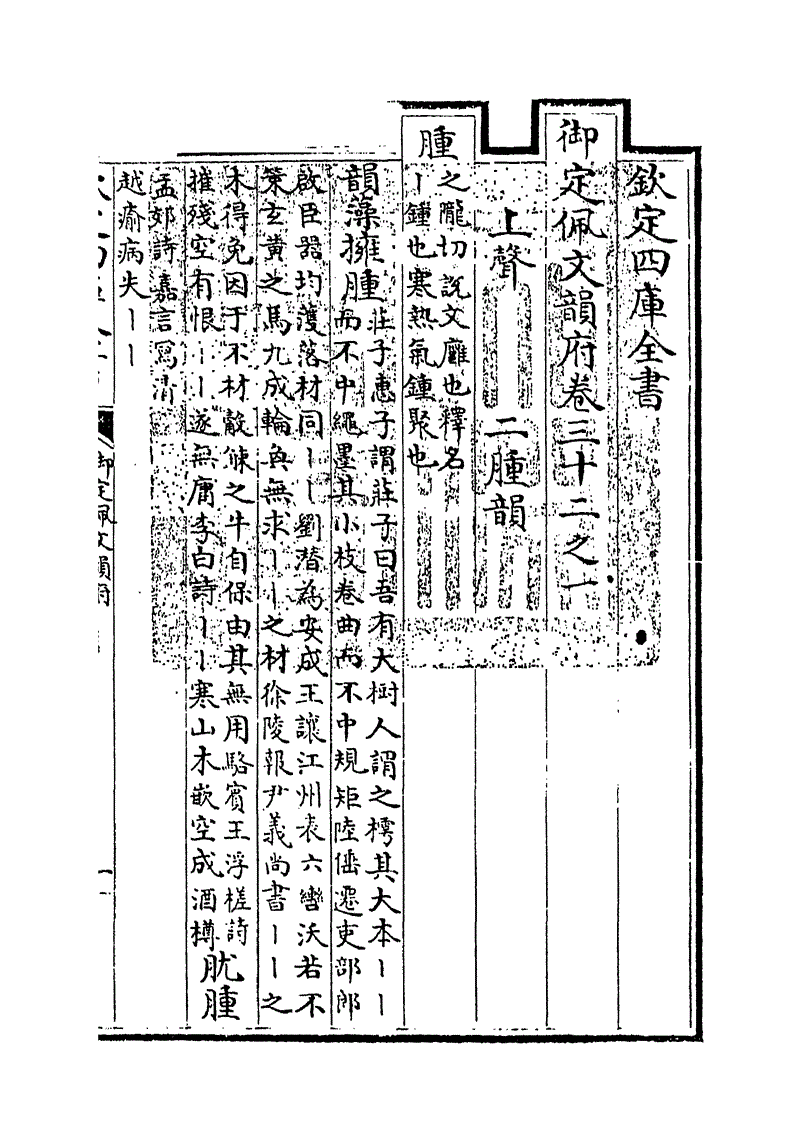 欽定四庫全書
御定佩文韻府卷三十二之一
上聲
二腫韻
腫
之隴切說文癰也釋名
丨鍾也寒熱氣鍾聚也
韻藻擁腫
莊子惠子謂莊子曰吾有大樹人謂之樗其大本丨丨
而不中繩墨其小枝卷曲而不中規矩陸倕遷吏部郎
啟臣器均濩落材同丨丨劉潛為安成王讓江州表六轡沃若不
策玄黄之馬九成輪奐無求丨丨之材徐陵報尹義尚書丨丨之
木得免因于不材觳觫之牛自保由其無用駱賓王浮槎詩
摧殘空有恨丨丨遂無庸李白詩丨丨寒山木嵌空成酒樽
肬腫
孟郊詩嘉言寫清
越瘉病失丨丨
御定佩文韻府
一